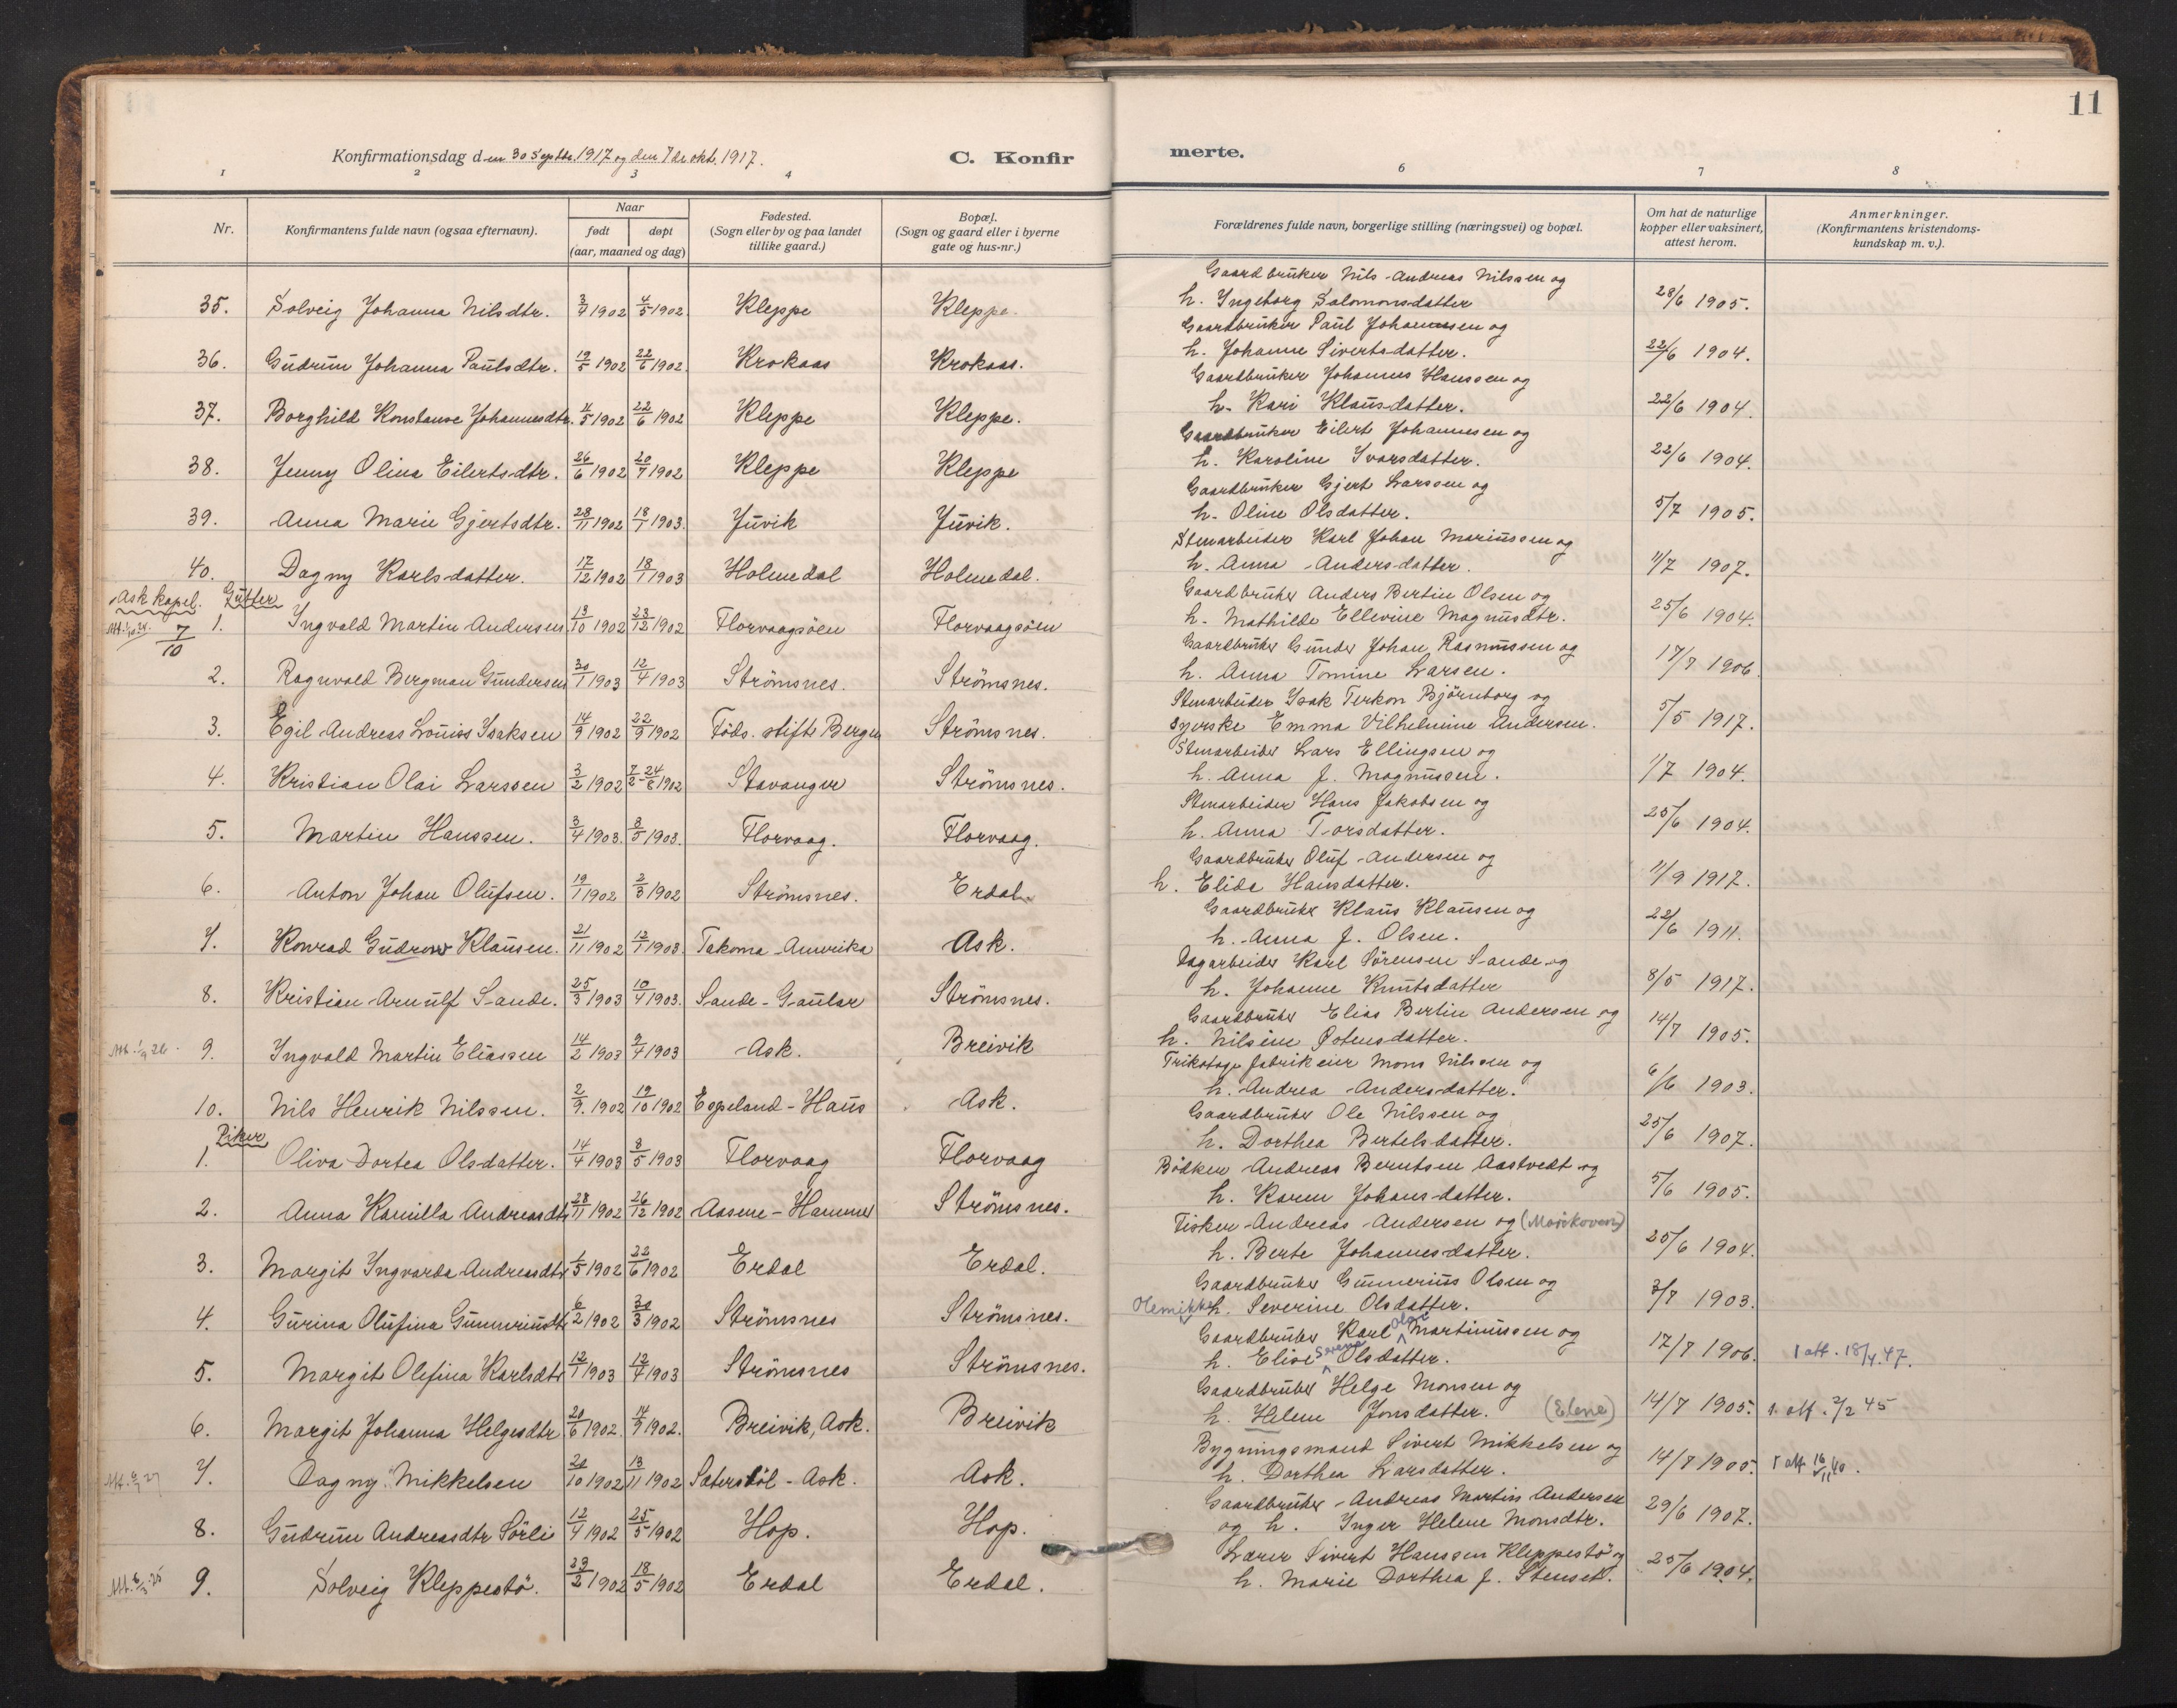 11
Konfirmationsdag den 30 Septbr. 1917 og den 7de okt. 1917.
C. Konfirmerte.
1 2 3 4 6 7 8
Nr.
Konfirmantens fulde navn (ogsaa efternavn).
Naar
født døpt
(aar, maaned og dag)
Fødested.
(Sogn eller by og paa landet
tillike gaard.)
Bopæl.
(Sogn og gaard eller i byerne
gate og hus-nr.)
Forældrenes fulde navn, borgerlige stilling (næringsvei) og bopæl.
Om hat de naturlige
kopper eller vaksinert,
attest herom.
Anmerkninger.
(Konfirmantens kristendoms-
kundskap m. v.).
Gaardbruker Nils Andreas Nilssen og
35. Solveig Johanna Nilsdtr. 3/4 1902 4/5 1902. Kleppe Kleppe. h. Ingeborg Salomonsdatter 28/6 1905.
Gaardbruker Paul Johannessen og
36. Gudrun Johanna Paulsdtr. 19/5 1902 22/6 1902. Krokaas Krokaas. h. Johanne Sivertsdatter. 22/6 1904.
Gaardbruker Johannes Hanssen og
37. Borghild Konstanse Johannesdtr. 4/5 1902 22/6 1902 Kleppe Kleppe. h. Kari Klausdatter. 22/6 1904.
Gaardbruker Eilert Johannesen og
38. Jenny Olina Eilertsdtr. 26/6 1902 20/7 1902 Kleppe Kleppe h. Karoline Ivarsdatter. 22/6 1904.
Gaardbruker Gjert Larssen og
39. Anna Marie Gjertsdtr. 28/11 1902 18/1 1903. Juvik Juvik. h. Oline Olsdatter. 5/7 1905.
Stenarbeider Karl Johan Mariussen og
40. Dagny Karlsdatter. 17/12 1902 18/1 1903 Holmedal Holmedal. h. Anna Andersdatter. 11/7 1907.
Ask kapel. Gutter
7/10
Gaardbruker Anders Bertin Olsen og
1. Ingvald Martin Andersen 13/10 1902 23/12 1902 Florvaagsöen Florvaagsöen h. Mathilde Ellevine Magnusdtr. 25/6 1904.
Gaardbruker Gunder Johan Rasmussen og
2. Ragnvald Bergman Gundersen 30/1 1903 12/4 1903 Strömsnes. Strömsnes. h. Anna Tomine Larsen. 17/7 1906.
Stenarbeider Isak Terkon Björnborg og
3. Egil Andreas Louiss Isaksen 14/9 1902 22/9 1902 Föds. stift. Bergen Strömsnes. syerske Emma Vilhelmine Andersen. 5/5 1917.
Stenarbeider Lars Ellingsen og
4. Kristian Olai Larssen 3/2 1902 7/2-24/6 1902 Stavanger Strömsnes. h. Anna J. Magnussen. 1/7 1904.
Stenarbeider Hans Jakobsen og
5. Martin Hanssen. 3/4 1903. 3/5 1903. Florvaag. Florvaag. h. Anna Torsdatter. 25/6 1904.
Gaardbruker Oluf Andersen og
6. Anton Johan Olufsen. 19/1 1902 2/3 1902 Strömsnes. Erdal. h. Elida Hansdatter. 11/9 1917.
Gaardbruker Klaus Klausen og
7. Konrad Gudrow Klausen. 21/11 1902 12/1 1903. Takoma-Amerika Ask. h. Anna J. Olsen. 22/6 1911.
Dagarbeider Karl Sörensen Sande og
8. Kristian Arnulf Sande. 25/3 1903 10/4 1903. Sande-Gaular Strömsnes. h. Johanne Knutsdatter 8/5 1917.
Gaardbruker Elias Bertin Andersen og
Att. 1/9 26. 9. Ingvald Martin Eliassen 14/2 1903 9/4 1903 Ask. Breivik h. Nilsine Potensdatter. 14/7 1905.
Trikotage fabrikeier Mons Nilssen og
10. Nils Henrik Nilssen. 2/9. 1902 19/10 1902 Espeland-Haus Ask. h. Andrea Andersdatter. 6/6 1903.
Piker
Gaardbruker Ole Nilssen og
1. Oliva Dortea Olsdatter. 14/4 1903 3/5 1903 Florvaag Florvaag h. Dorthea Bertelsdatter. 25/6 1907.
Bödker Andreas Berntsen Aastvedt og
2. Anna Kamilla Andreasdtr 28/11 1902 26/12 1902 Aasene-Hammer Strömsnes. h. Karen Johansdatter. 5/6 1905.
Fisker Andreas Andersen og (Marikoven)
3. Margit Ingvarda Andreasdtr 1/5 1902 22/6 1902 Erdal Erdal. h. Berte Johannesdatter. 25/6 1904.
Gaardbruker Gunnerius Olsen og
4. Gurina Olufina Gunneriusdtr 6/2 1902 30/3 1902 Strömsnes Strömsnes. Olemikkel h. Severine Olsdatter. 3/7 1903.
Gaardbruker Karl Olai Martinussen og
5. Margit Olefina Karlsdtr 12/1 1903 12/4 1903 Strömsnes Strömsnes. h. Elise Serene Olsdatter. 17/7 1906. 1 att. 18/4. 47.
Gaardbruker Helge Monsen og
6. Margit Johanna Helgesdtr 20/6 1902. 14/9 1902. Breivik, Ask. Breivik h. Helene Jonsdatter. (Elene) 14/7 1905. 1. att. 2/2 45
Bygningsmand Sivert Mikkelsen og
7. Dagny Mikkelsen 20/10 1902 13/11 1902 Sætersböl-Ask. Ask. h. Dorthea Larsdatter. 14/7 1905. 1 att 16/11 40.
Gaardbruker Andreas Martin Andersen
8. Gudrun Andreasdtr Sörli 12/4 1902 25/5 1902 Hop. Hop. og h. Inger Helene Monsdtr. 29/6 1907.
Lærer Sivert Hanssen Kleppestö og
9. Solveig Kleppestö. 23/2 1902 18/5 1902 Erdal Erdal. h. Marie Dorthea J. Stenset. 25/6 1904.